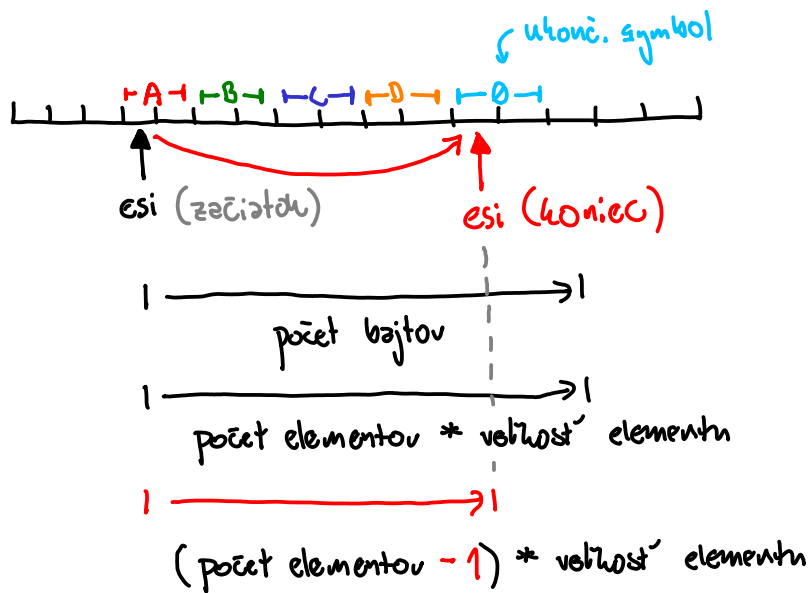 ukonč. symbol
A B C D 0
esi (začiatok)
esi (koniec)
počet bajtov
počet elementov * veľkosť elementu
(počet elementov - 1) * veľkosť elementu